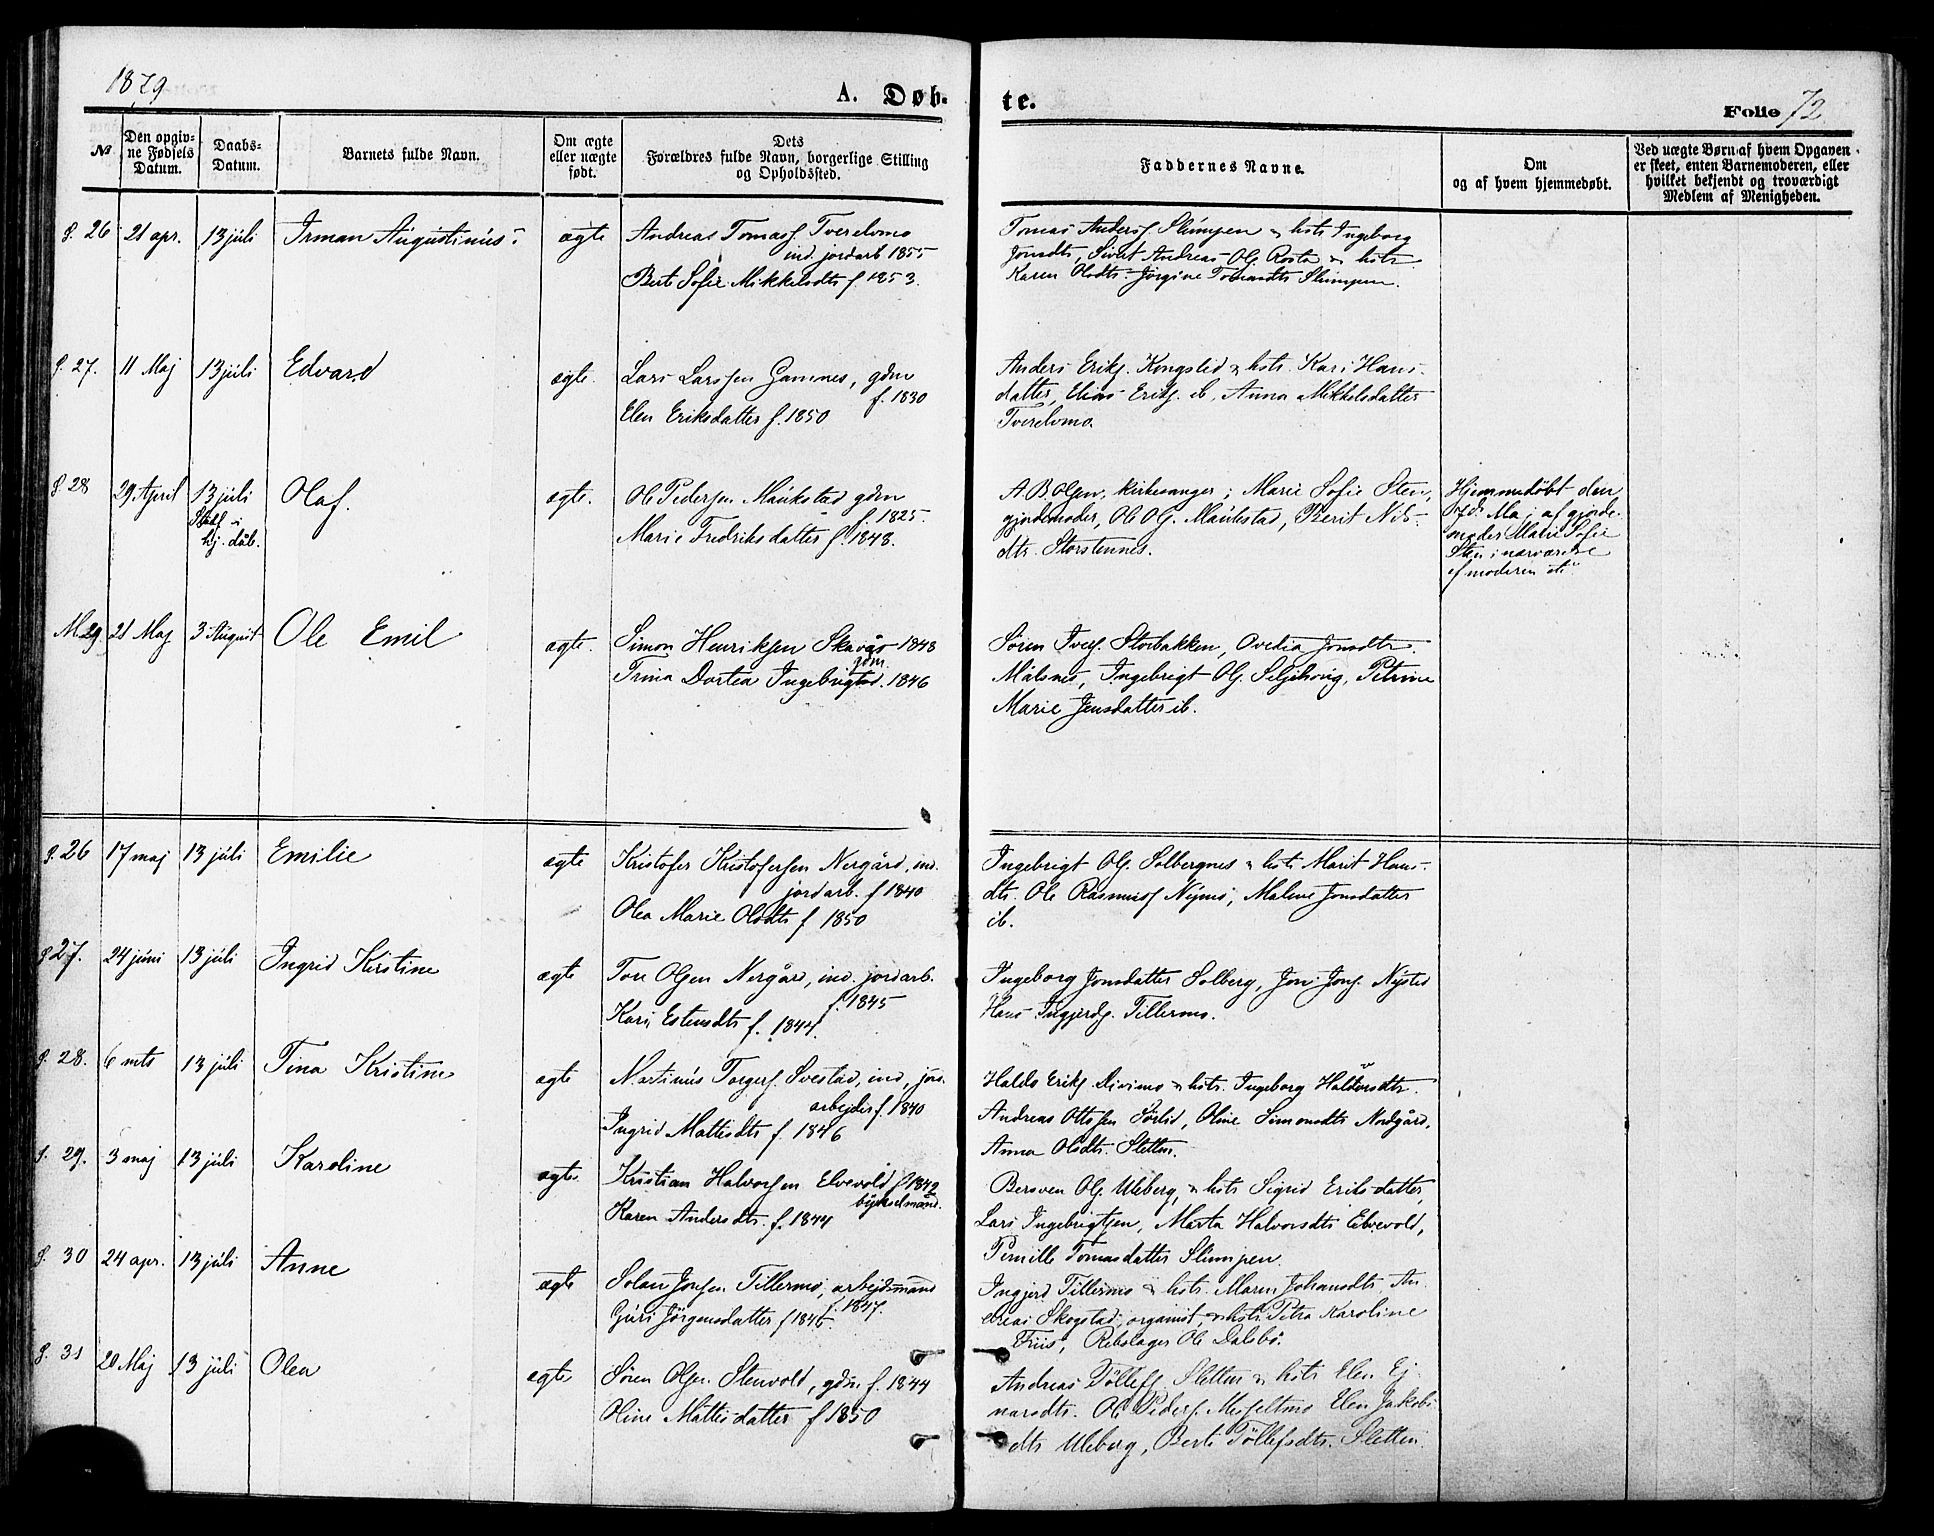 1879
A. Døb-
te.
Folie 72
№
Den opgiv-
ne Fødsels
Datum.
Daabs-
Datum.
Barnets fulde Navn.
Om ægte
eller uægte
født.
Dets
Forældres fulde Navn, borgerlige Stilling
og Opholdssted.
Faddernes Navne.
Om
og af hvem hjemmedøbt.
Ved uægte Børn af hvem Opgaven
er skeet, enten Barnemoderen, eller
hvilket bekjendt og troværdigt
Medlem af Menigheden.
26 21 apr. 13 júli Irman Aúgústinús ægte
Andreas Tomasf. Tverelvmo
ind. jordarb 1855
Berit Sofie Mikkelsdtr f. 1853.
Tomas Andersf. Slimpen & hstr Ingeborg
Jonsdtr, Andreas Ol. Rosta & hstr
Karen Olsdtr. Jørgine Tomasdtr Slimpen.
27. 11 Maj 13 júli Edvard ægte.
Lars Larssen Gamnes, gdm
f. 1830
Elen Eriksdatter f. 1850
Anders Erikf. Kongslid & hstr. Kari Hans-
datter, Elias Erikf. ib, Anna Mikkelsdatter
Tverelvmo.
28 29 April 13 júli Olaf. ægte.
Stadf. i
hj. dåb.
Ole Pedersen Maúkstad gdm
f. 1825.
Marie Fredriksdatter f. 1848.
A. B. Olsen, kirkesanger; Marie Sofie Sten,
gjordemoder, Ole Ol. Maúkstad, Berit Nils-
dtr. Storstennes.
Hjemmedøbt den
Maj af gjorde-
moder Marie Sofie
Sten i nærværelse
af moderen
29. 21 Maj 3 Aúgúst Ole Emil ægte.
Simon Henriksen Skavås 1848
gdm.
Trina Dortea Ingebrigtsd. 1846
Søren Iverf. Storbakken, Ovedia Jonsdtr.
Målsnes, Ingebrigt Ol. Seljehoug, Petrine
Marie Jensdatter ib.
26 17 maj 13 júli Emilie ægte
Kristofer Kristofersen Nergård, ind.
jordarb. f 1840
Olea Marie Olsdtr f 1850
Ingebrigt Ol. Solbergnes & hstr Marit Hans-
dtr. Ole Rasmusf Nymo, Maline Jonsdatter
ib.
27. 24 júni 13 júli Ingrid Kirstine ægte
Tore Olsen Nergård, ind. jordarb.
f. 1845
Kari Estensdtr f. 1844.
Ingeborg Jonsdatter Solberg, Jon Jonf. Nysted
Hans Ingjerdf. Tillermo.
28. 6 mts 13 júli Tina Kristine ægte
Martinús Torgerf. Svestad, ind, jord.
arbejder f. 1840
Ingrid Mattisdtr f 1846
Haldo Erikf. Divimo & hstr. Ingeborg Haldorsdtr.
Andreas Ottosen Sørlid, Oline Simonsdtr Nordgård,
Anna Olsdtr. Sletten.
29. 3 maj 13 júli Karoline ægte
Kristian Halvorsen Elvevold f 1842
býkselmand.
Karen Andersdtr. f. 1844
Bersven Ol. Uleberg, & hstr Sigrid Eriksdatter,
Lars Ingebrigtsen, Marta Halvorsdtr Elvevold,
Pernille Tomasdatter Slimpen.
30 24 apr. 13 júli Anne ægte
Jonsen Tillermo, arbejdsmand
f. 1847.
Gúri Jørgensdatter f 1846.
Ingjerd Tillermo & hstr. Maren Johansdtr, An-
dreas Skogstad, organist, & hstr Petra Karoline
Friis, Rebslager Ole Dalsbø.
31 20 Maj 13 júli Olea ægte
Søren Olsen Stenvold, gdm. f. 1844
Oline Mattisdatter f 1850
Andreas Tøllefs. Sletten & hstr Elen Ej-
narsdtr. Ole Pedersf. Messeltmo Elen Jakobs-
dtr Uleberg, Berit Tøllefsdtr. Sletten.